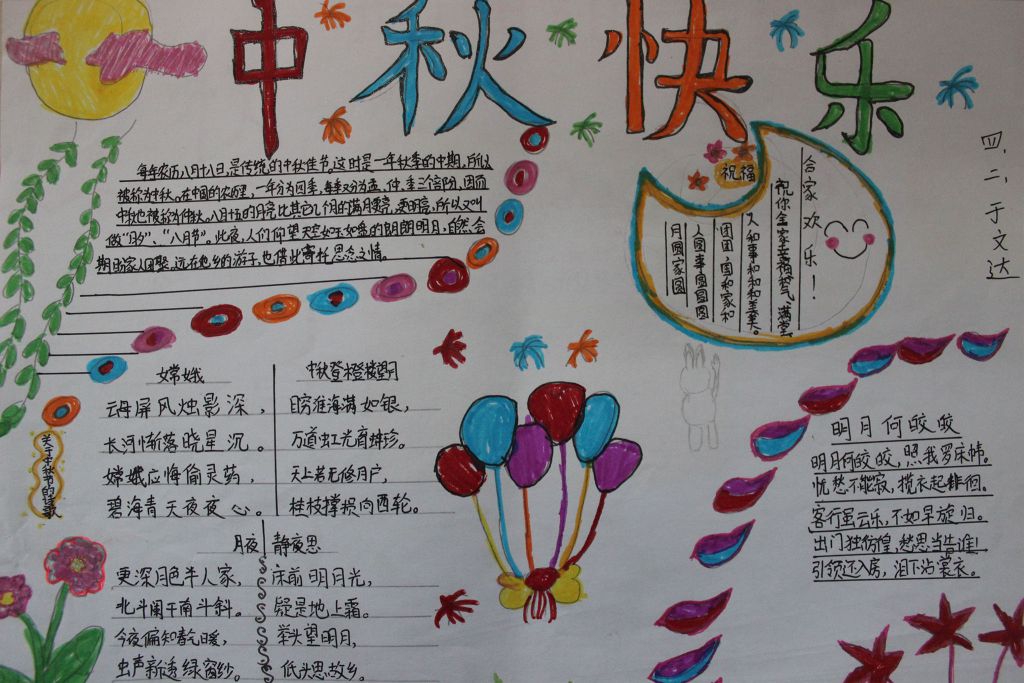 中秋快乐
四、二、于文达
每年农历八月十八日，是传统的中秋佳节。这时是一年秋季的中期，所以
被称为中秋。在中国的农历里，一年分为四季，每季又分为孟、仲、季三个部分，因而
中秋也被称为仲秋。八月十五的月亮比其它几个月的满月更亮，更明亮，所以又叫
做“月夕”、“八月节”。此夜，人们仰望天空如玉如盘的朗朗明月，自然会
期盼家人团聚，远在他乡的游子，也借此寄托思念之情。
祝福
合家欢乐！
祝你全家幸福和气、满堂
人和事和和和美美。
团团，国和家和
人圆事圆圆圆圆
月圆家圆
关于中秋节的诗歌
嫦娥
云母屏风烛影深，
长河渐落晓星沉。
嫦娥应悔偷灵药，
碧海青天夜夜心。
中秋登橙楼望月
目穷淮海满如银，
万道虹光育珠珍。
天上若无修月户，
桂枝撑损向西轮。
月夜
更深月色半人家，
北斗阑干南斗斜。
今夜偏知春气暖，
虫声新透绿窗纱。
静夜思
床前明月光，
疑是地上霜。
举头望明月，
低头思故乡。
明月何皎皎
明月何皎皎，照我罗床帏。
忧愁不能寐，揽衣起徘徊。
客行虽云乐，不如早旋归。
出门独彷徨，愁思当告谁！
引领还入房，泪下沾裳衣。